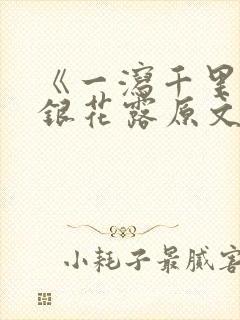 《一泻千里
银花露原文
小耗子最腻害